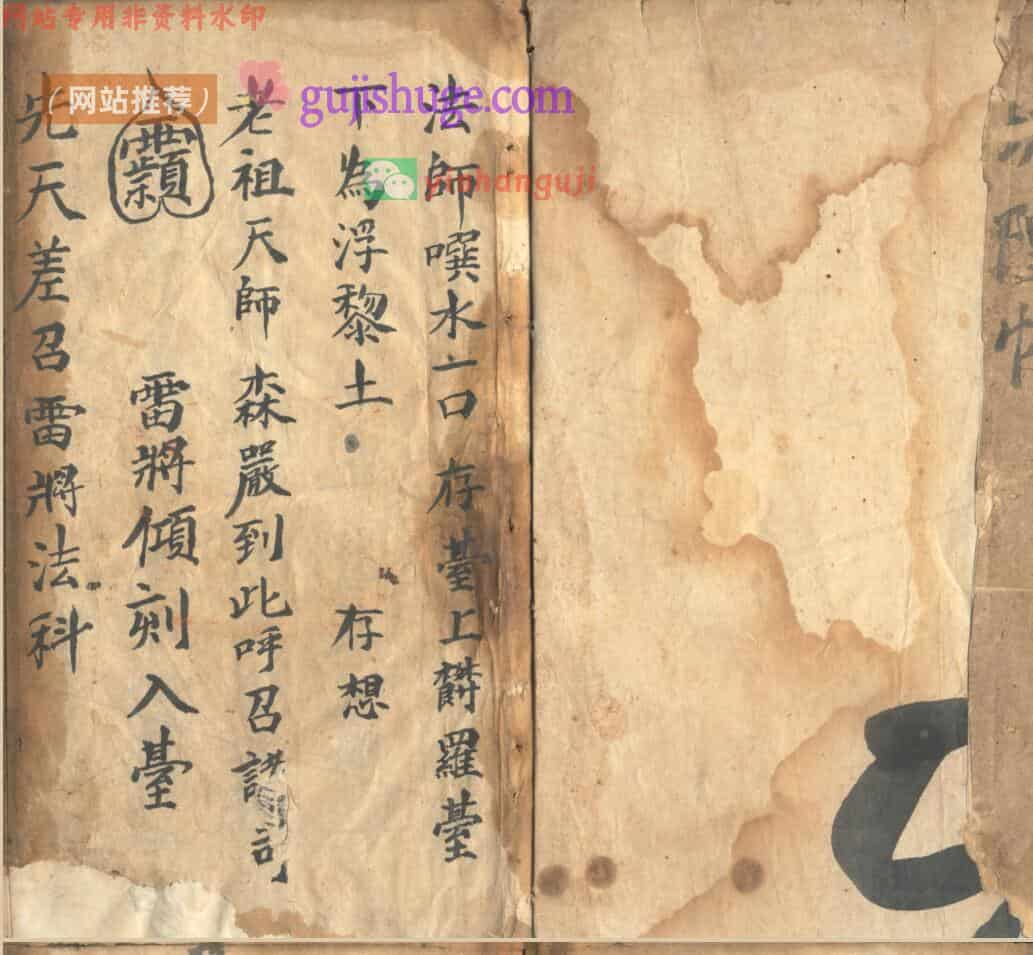 网站专用非资料水印
（网站推荐）
gujishuge.com
yinhanguji
法師噀水一口 存臺上欝羅臺
下為浮黎土 存想
老祖天師 森嚴到此呼召
雷將傾刻入臺
先天差召雷將法科